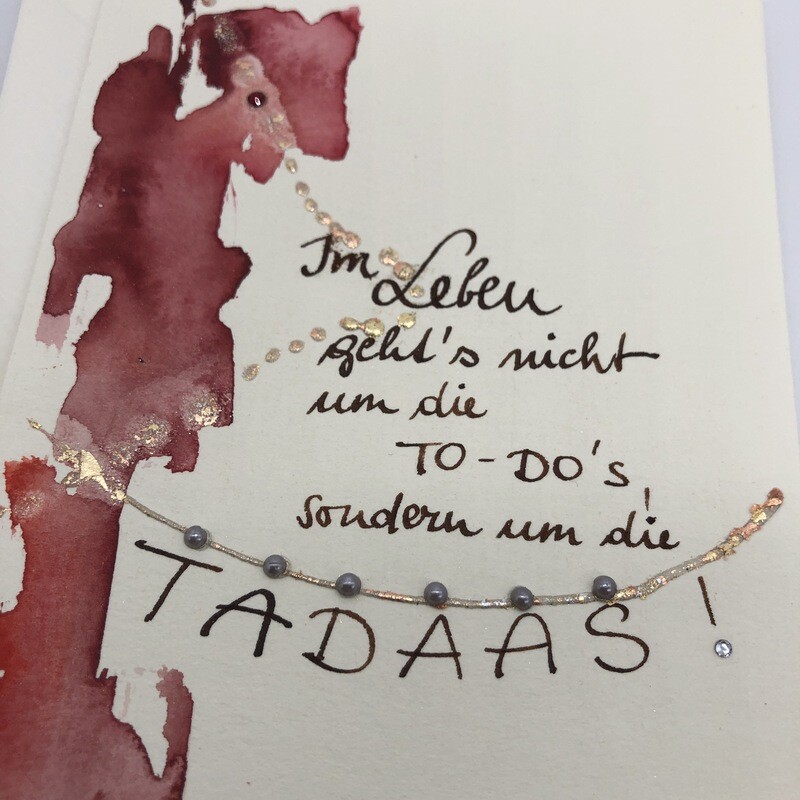 Im Leben
geht's nicht
um die
TO-DO's,
sondern um die
TADAAS!